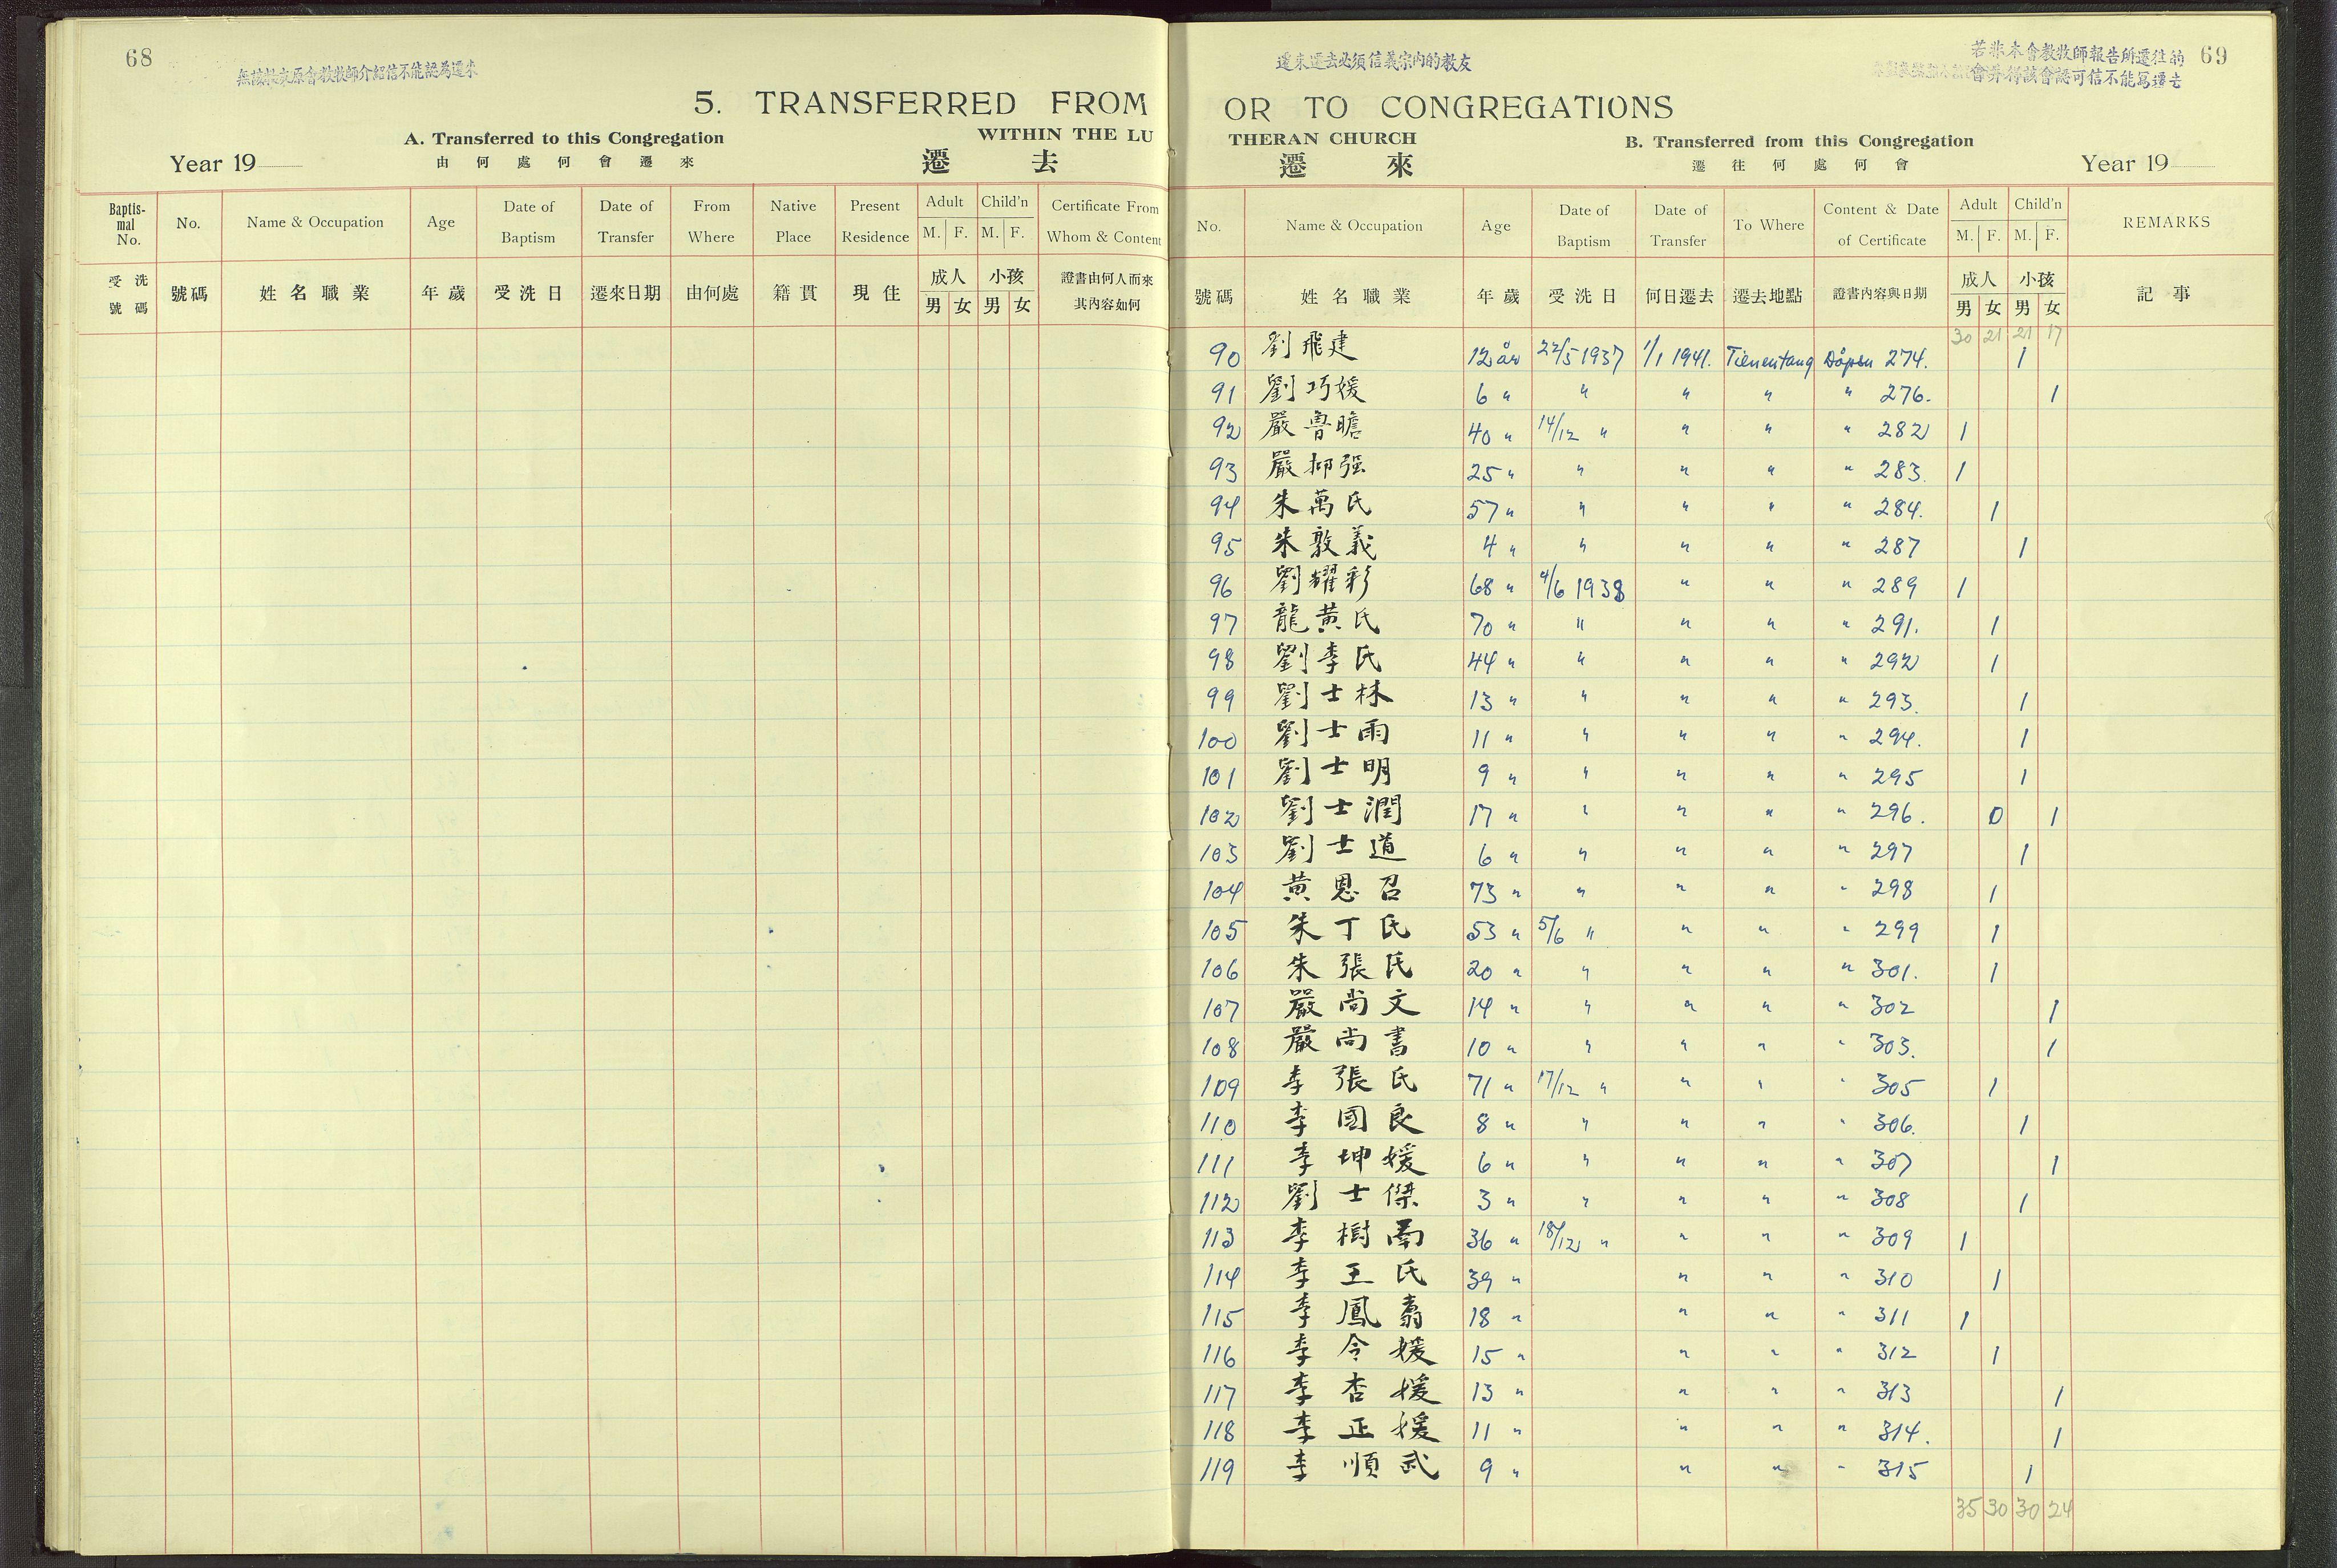 68
無該牧立原會教牧師介紹信不能認為遷來
5. TRANSFERRED FROM
A. Transferred to this Congregation
WITHIN THE LU
Year 19
由何處何會遷來
遷去
Baptismal No. | No. | Name & Occupation | Age | Date of Baptism | Date of Transfer | From Where | Native Place | Present Residence | Adult M. F. | Child'n M. F. | Certificate From Whom & Content
受洗號碼 | 號碼 | 姓名職業 | 年歲 | 受洗日 | 遷來日期 | 由何處 | 籍貫 | 現住 | 成人 男 女 | 小孩 男 女 | 證書由何人而來其內容如何
遷來遷去必須信義宗內的教友
若非本會教牧師報告所遷往的
會并得該會認可信不能寫遷去
69
OR TO CONGREGATIONS
THERAN CHURCH
B. Transferred from this Congregation
遷來
遷往何處何會
Year 19
No. | Name & Occupation | Age | Date of Baptism | Date of Transfer | To Where | Content & Date of Certificate | Adult M. F. | Child'n M. F. | REMARKS
號碼 | 姓名職業 | 年歲 | 受洗日 | 何日遷去 | 遷去地點 | 證書內容與日期 | 成人 男 女 | 小孩 男 女 | 記事
30 21 21 17
90 劉飛建 12 år 22/5 1937 1/1 1941. Tienentang Dåpsn 274. 1
91 劉巧媛 6 " " " " " 276. 1
92 嚴魯瞻 40 " 14/12 " " " " 282 1
93 嚴抑强 25 " " " " " 283. 1
94 朱萬氏 57 " " " " " 284. 1
95 朱敦義 4 " " " " " 287 1
96 劉耀彩 68 " 4/6 1938 " " " 289 1
97 龍黃氏 70 " " " " " 291. 1
98 劉李氏 44 " " " " " 292 1
99 劉士林 13 " " " " " 293. 1
100 劉士雨 11 " " " " " 294. 1
101 劉士明 9 " " " " " 295 1
102 劉士潤 17 " " " " " 296. 0 1
103 劉士道 6 " " " " " 297 1
104 黃恩召 73 " " " " " 298 1
105 朱丁氏 53 " 5/6 " " " " 299 1
106 朱張氏 20 " " " " " 301. 1
107 嚴尚文 14 " " " " " 302 1
108 嚴尚書 10 " " " " " 303. 1
109 李張氏 71 " 17/12 " " " " 305 1
110 李國良 8 " " " " " 306. 1
111 李坤媛 6 " " " " " 307 1
112 劉士傑 3 " " " " " 308 1
113 李樹南 36 " 18/12 " " " " 309 1
114 李王氏 39 " " " " 310 1
115 李鳳翥 18 " " " " 311 1
116 李令媛 15 " " " " 312 1
117 李杏媛 13 " " " " 313 1
118 李正媛 11 " " " " 314. 1
119 李順武 9 " " " " 315 1
35 30 30 24